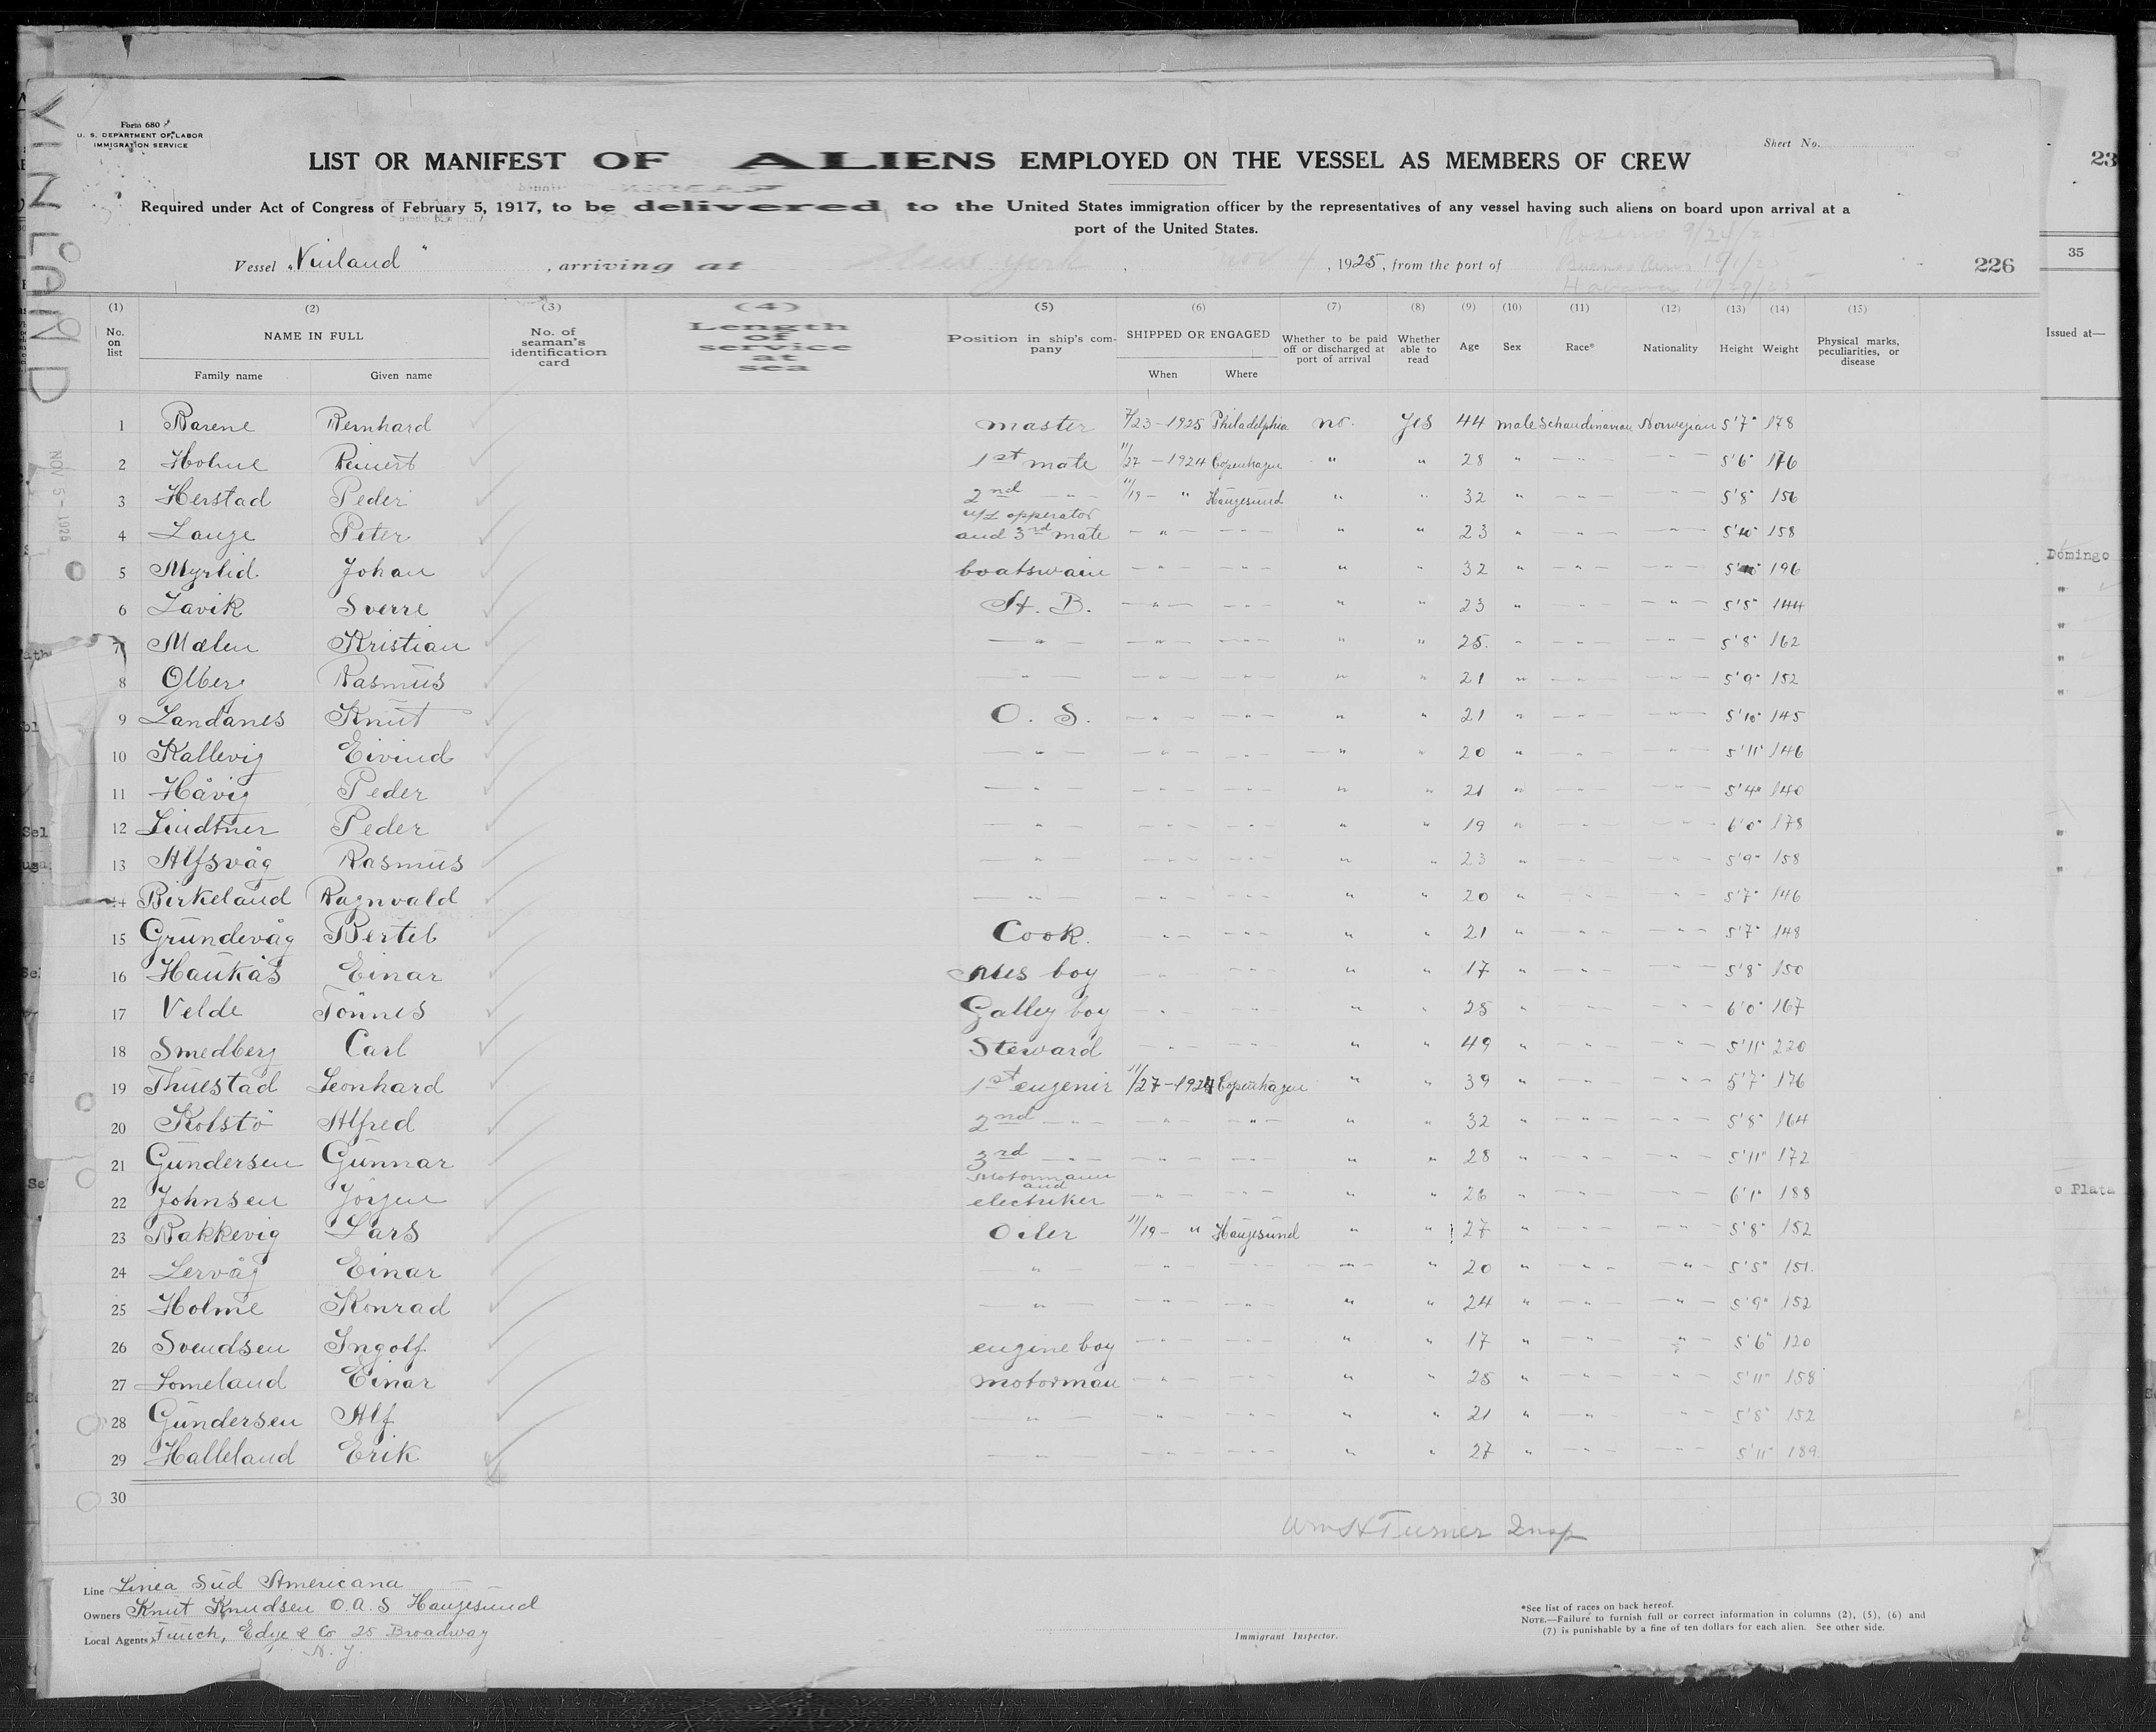 Form 680
U. S. DEPARTMENT OF LABOR
IMMIGRATION SERVICE
Sheet No.
LIST OR MANIFEST OF ALIENS EMPLOYED ON THE VESSEL AS MEMBERS OF CREW
Required under Act of Congress of February 5, 1917, to be delivered to the United States immigration officer by the representatives of any vessel having such aliens on board upon arrival at a
port of the United States.
VINLAND
Vessel "Vinland", arriving at New York, Nov 4, 1925, from the port of
Rosario 9/24/2
Buenos Aires 10/1/2
Havana 10/29/25
226
(1) (2) (3) (4) (5) (6) (7) (8) (9) (10) (11) (12) (13) (14) (15)
No. on list
NAME IN FULL
Family name Given name
No. of seaman's identification card
Length of service at sea
Position in ship's company
SHIPPED OR ENGAGED
When Where
Whether to be paid off or discharged at port of arrival
Whether able to read
Age Sex Race* Nationality Height Weight
Physical marks, peculiarities, or disease
NOV 5 - 1925
1 Barene Bernhard master 7/23-1925 Philadelphia no. yes 44 male Schandinavian Norwegian 5'7" 178
2 Holme Reinert 1st mate 11/27 - 1924 Copenhagen " " 28 " - " - - " - 5'6" 176
3 Herstad Peder 2nd - " - 11/19 - " Haugesund " " 32 " - " - - " - 5'8" 156
4 Lange Peter w/t opperator and 3rd mate - " - - " - " " 23 " - " - - " - 5'10" 158
5 Myrlid Johan boatswain - " - - " - " " 32 " - " - - " - 196
6 Lavik Sverre St. B. - " - - " - " " 23 " - " - - " - 5'5" 144
7 Mælen Kristian - " - - " - - " - " " 25. " - " - - " - 5'8" 162
8 Olberg Rasmus - " - - " - - " - " " 21 " - " - - " - 5'9" 152
9 Landanes Knut O. S. - " - - " - " " 21 " - " - - " - 5'10" 145
10 Kallevig Eivind - " - - " - - " - " " 20 " - " - - " - 5'11" 146
11 Håvig Peder - " - - " - - " - " " 21 " - " - - " - 5'4" 140
12 Lindtner Peder - " - - " - - " - " " 19 " - " - - " - 6'0" 178
13 Alfsvåg Rasmus - " - - " - - " - " " 23 " - " - - " - 5'9" 158
14 Birkeland Ragnvald - " - - " - - " - " " 20 " - " - - " - 5'7" 146
15 Grundevåg Bertel Cook. - " - - " - " " 21 " - " - - " - 5'7" 148
16 Haukås Einar Mes boy - " - - " - " " 17 " - " - - " - 5'8" 150
17 Velde Tönnes Galley boy - " - - " - " " 25 " - " - - " - 6'0" 167
18 Smedberg Carl Steward - " - - " - " " 49 " - " - - " - 5'11" 220
19 Thuestad Leonhard 1st eugenir 11/27-1924 Copenhagen " " 39 " - " - - " - 5'7" 176
20 Kolstö Alfred 2nd - " - - " - - " - " " 32 " - " - - " - 5'8" 164
21 Gundersen Gunnar 3rd - " - - " - - " - " " 28 " - " - - " - 5'11" 172
22 Johnsen Jörgen Motormann and electriker - " - - " - " " 26 " - " - - " - 6'1" 188
23 Bakkevig Lars Oiler 11/19- " Haugesund " " 27 " - " - - " - 5'8" 152
24 Lervåg Einar - " - - " - - " - " " 20 " - " - - " - 5'5" 151.
25 Holme Konrad - " - - " - - " - " " 24 " - " - - " - 5'9" 152
26 Svendsen Ingolf engine boy - " - - " - " " 17 " - " - - " - 5'6" 120
27 Lomeland Einar motorman - " - - " - " " 25 " - " - - " - 5'11" 158
28 Gundersen Alf - " - - " - - " - " " 21 " - " - - " - 5'8" 152
29 Halleland Erik - " - - " - - " - " " 27 " - " - - " - 5'11" 189.
30
Wm H Turner Insp
Line Linea Sud Americana
Owners Knut Knudsen O.A.S Haugesund
Local Agents Funch, Edye & Co 25 Broadway
N. Y.
Immigrant Inspector.
*See list of races on back hereof.
NOTE.—Failure to furnish full or correct information in columns (2), (5), (6) and
(7) is punishable by a fine of ten dollars for each alien. See other side.
23
35
Issued at—
Domingo
"
"
"
"
"
"
o Plata